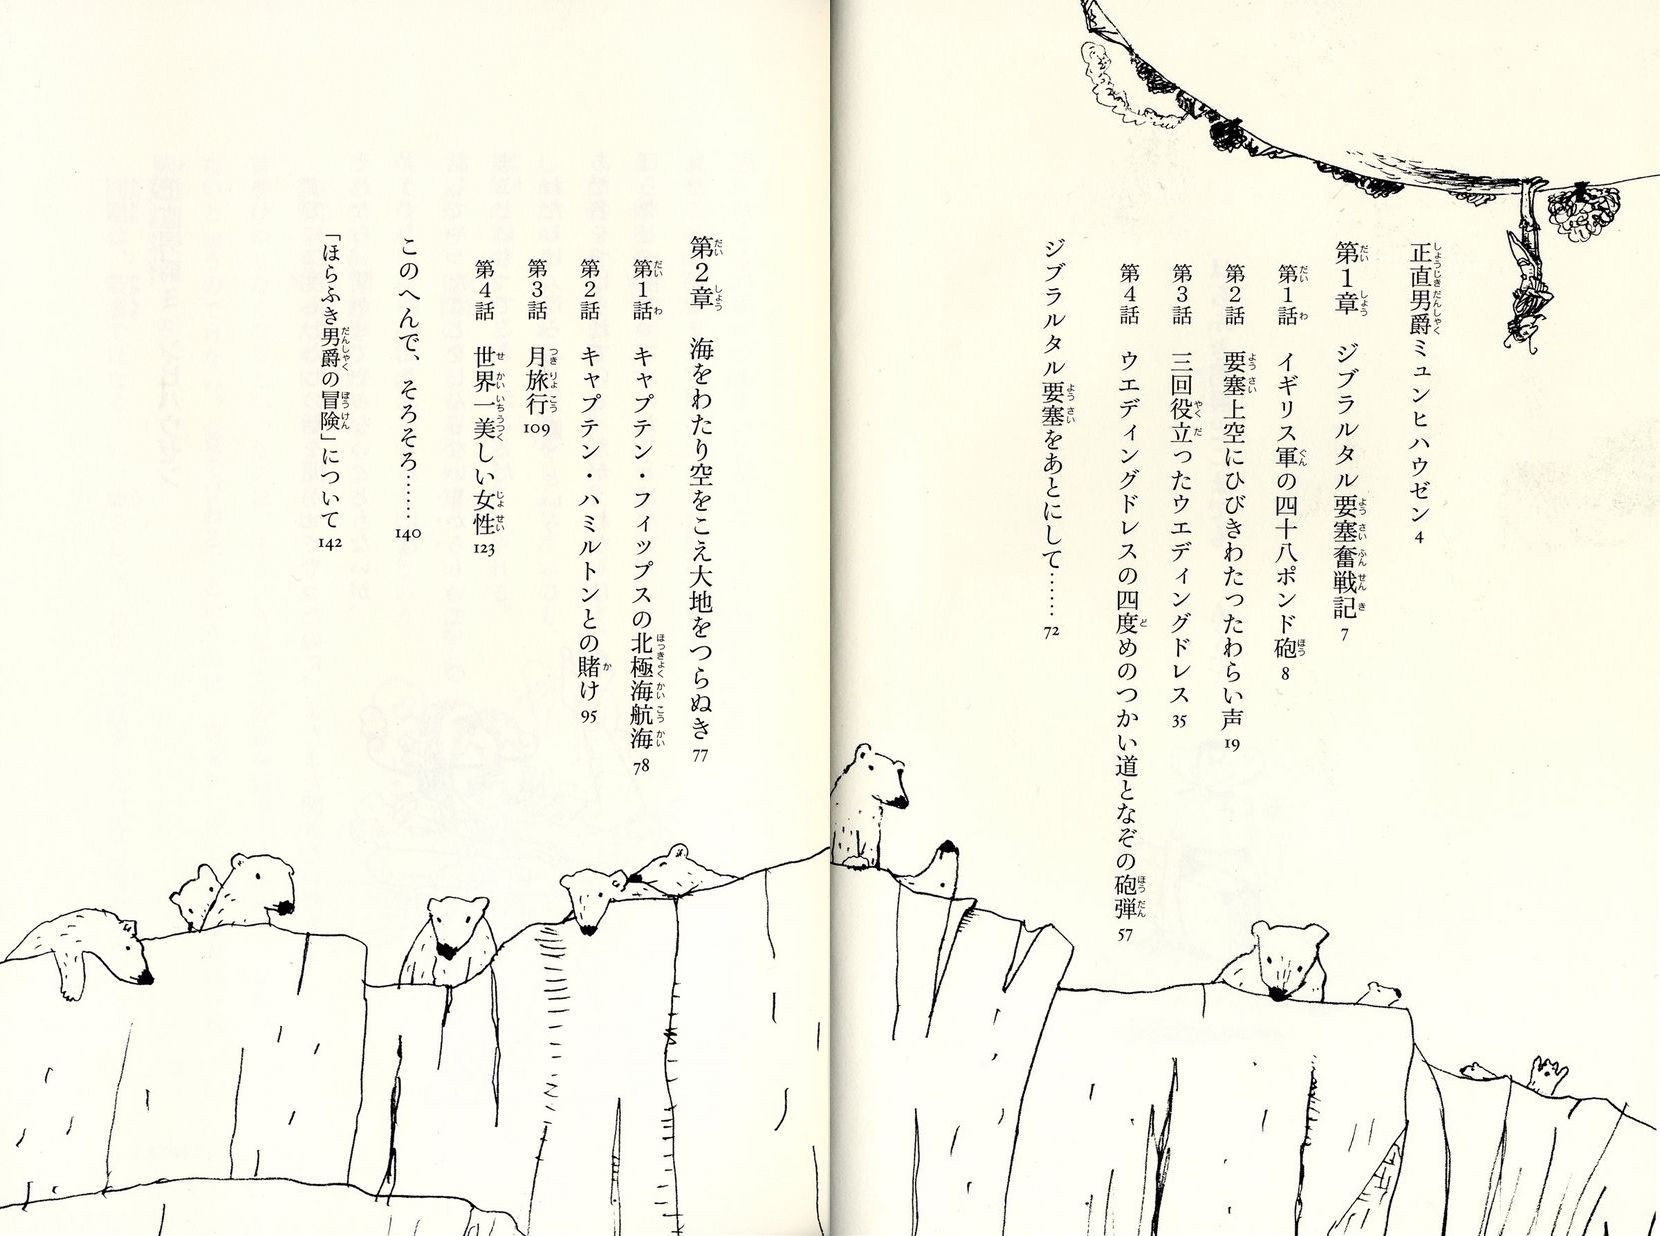 正直男爵ミュンヒハウゼン 4
第1章 ジブラルタル要塞奮戦記 7
第1話 イギリス軍の四十八ポンド砲 8
第2話 要塞上空にひびきわたったわらい声 19
第3話 三回役立ったウエディングドレス 35
第4話 ウエディングドレスの四度めのつかい道となぞの砲弾 57
ジブラルタル要塞をあとにして…… 72
第2章 海をわたり空をこえ大地をつらぬき 77
第1話 キャプテン・フィップスの北極海航海 78
第2話 キャプテン・ハミルトンとの賭け 95
第3話 月旅行 109
第4話 世界一美しい女性 123
このへんで、そろそろ…… 140
「ほらふき男爵の冒険」について 142